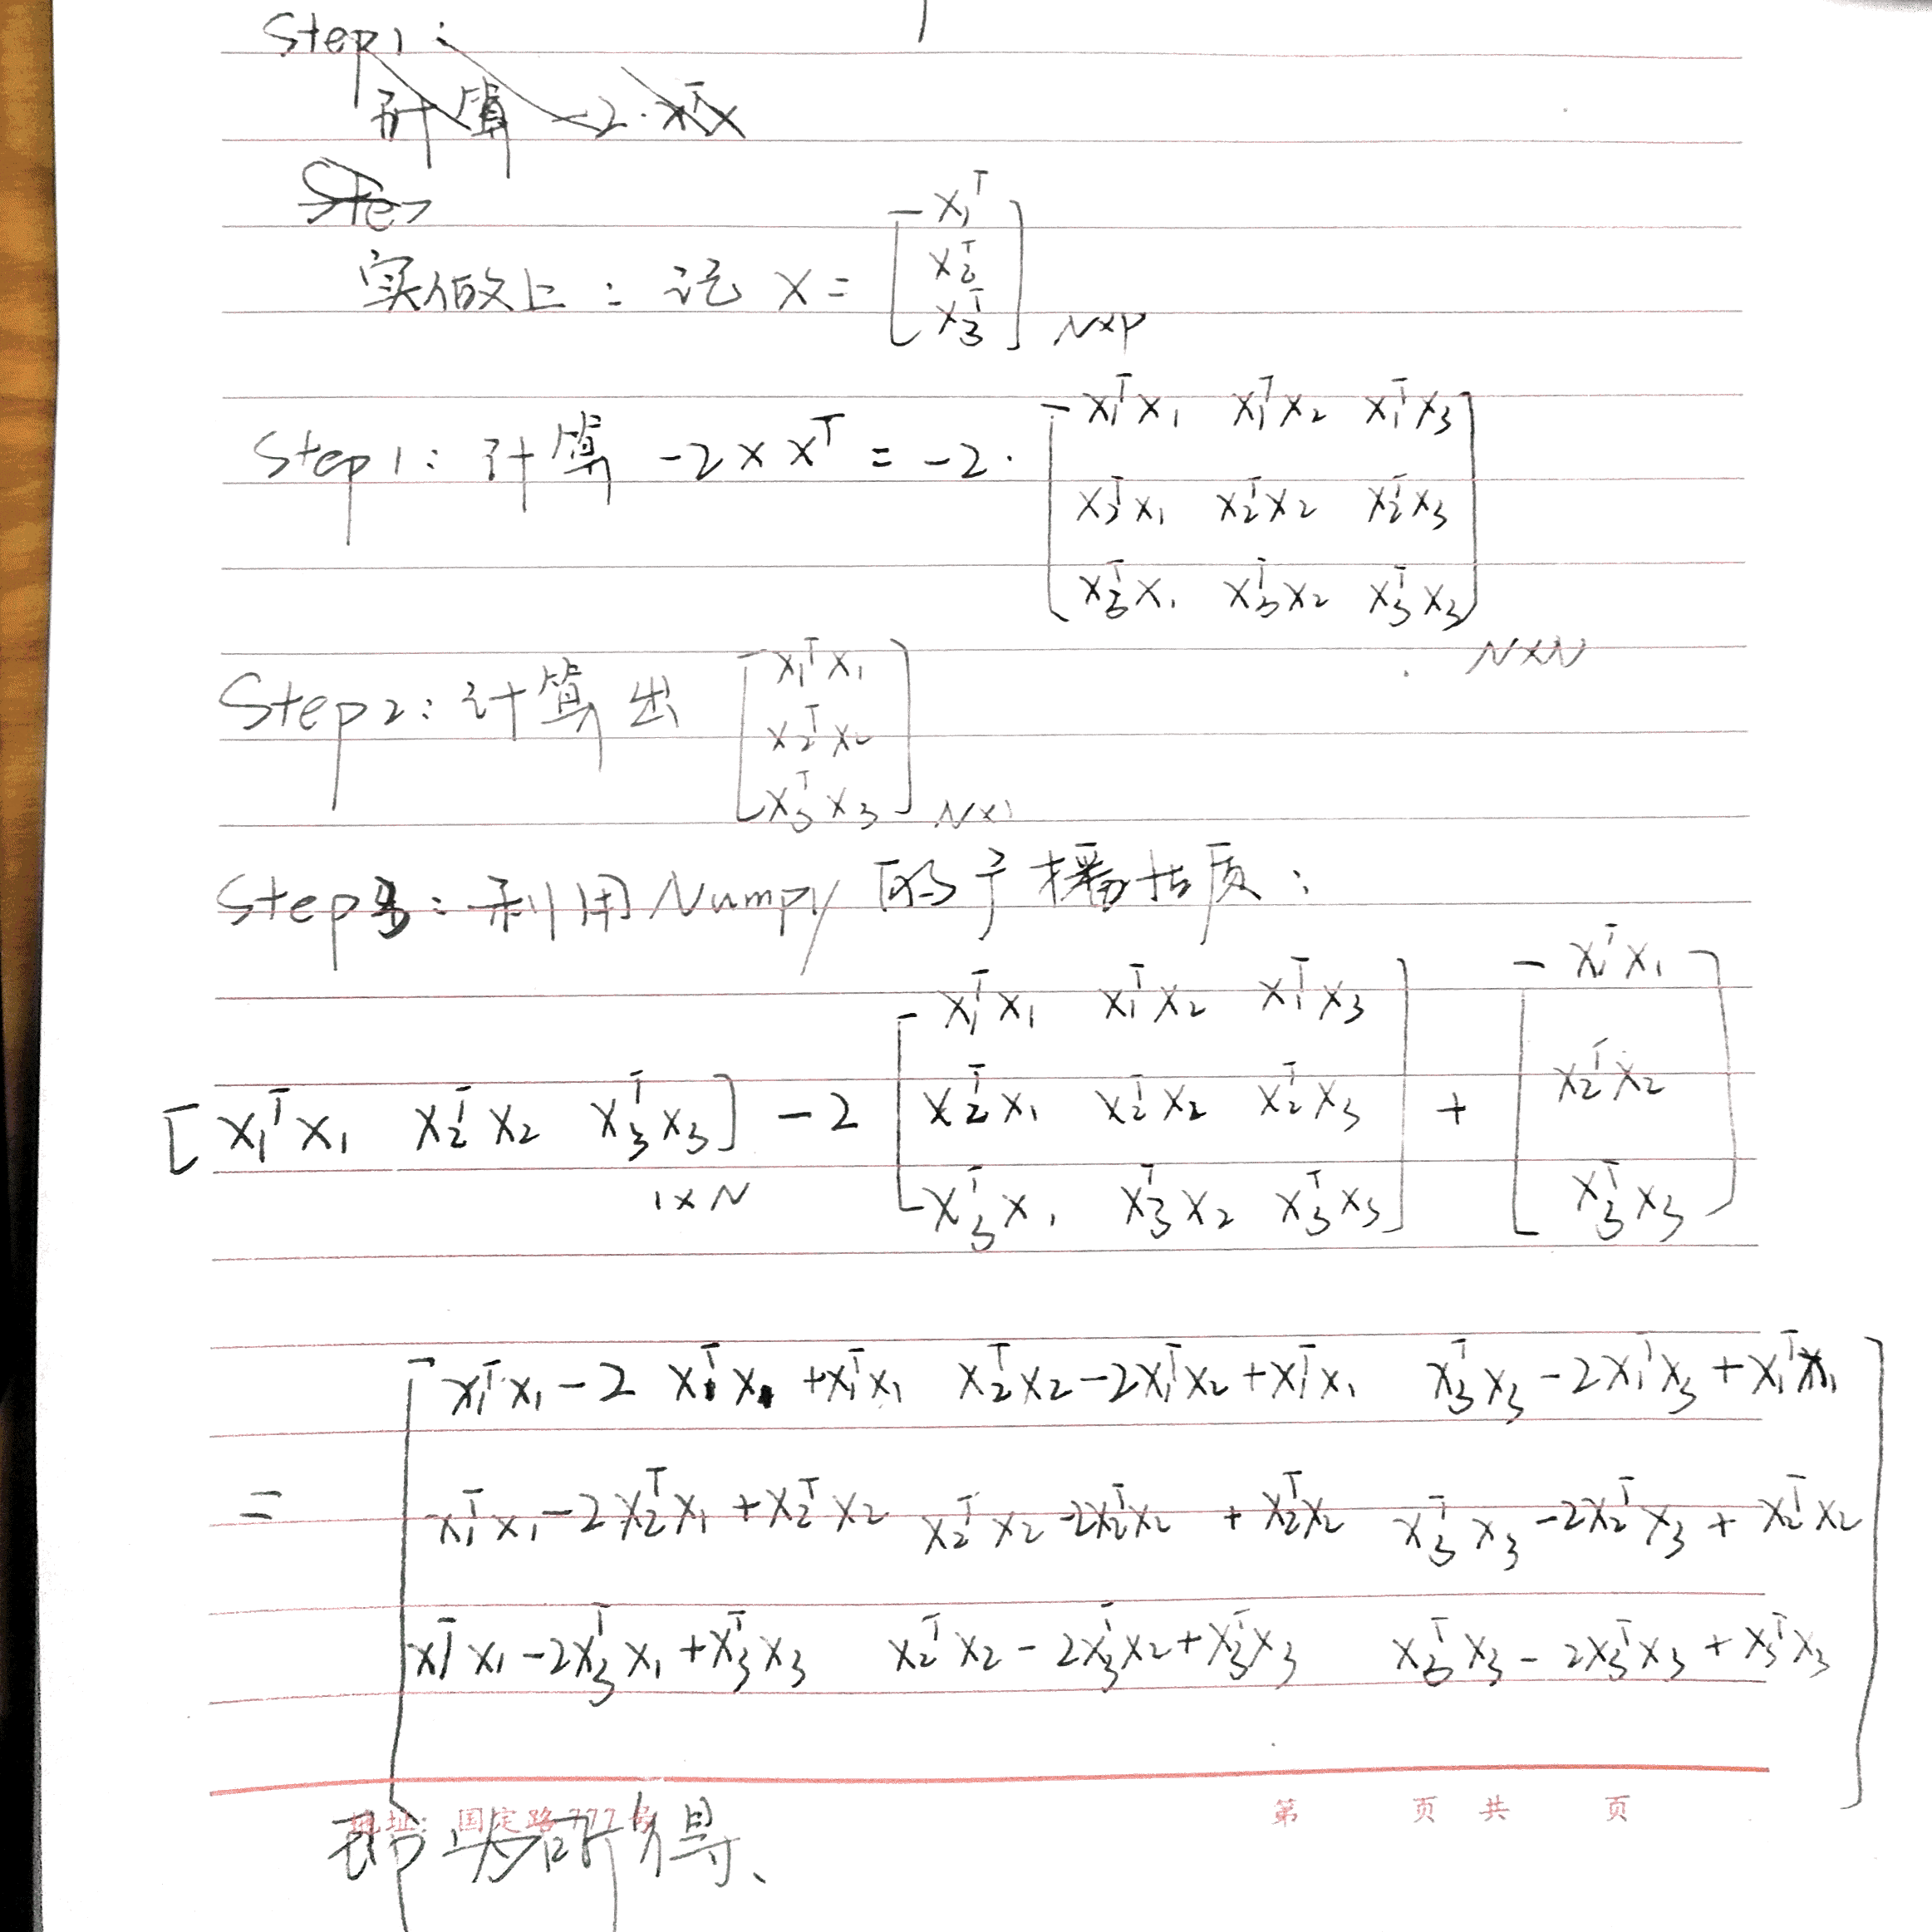 Step1:
计算 -2·x^Tx
Ste
实做上: 记 X = [x_1^T; x_2^T; x_3^T]_{N×P}
Step1: 计算 -2XX^T = -2·[x_1^Tx_1 x_1^Tx_2 x_1^Tx_3; x_2^Tx_1 x_2^Tx_2 x_2^Tx_3; x_3^Tx_1 x_3^Tx_2 x_3^Tx_3]_{N×N}
Step2: 计算出 [x_1^Tx_1; x_2^Tx_2; x_3^Tx_3]_{N×1}
Step3: 利用Numpy的广播性质:
[x_1^Tx_1 x_2^Tx_2 x_3^Tx_3]_{1×N} - 2[x_1^Tx_1 x_1^Tx_2 x_1^Tx_3; x_2^Tx_1 x_2^Tx_2 x_2^Tx_3; x_3^Tx_1 x_3^Tx_2 x_3^Tx_3] + [x_1^Tx_1; x_2^Tx_2; x_3^Tx_3]
= [x_1^Tx_1-2x_1^Tx_1+x_1^Tx_1 x_2^Tx_2-2x_1^Tx_2+x_1^Tx_1 x_3^Tx_3-2x_1^Tx_3+x_1^Tx_1;
x_1^Tx_1-2x_2^Tx_1+x_2^Tx_2 x_2^Tx_2-2x_2^Tx_2+x_2^Tx_2 x_3^Tx_3-2x_2^Tx_3+x_2^Tx_2;
x_1^Tx_1-2x_3^Tx_1+x_3^Tx_3 x_2^Tx_2-2x_3^Tx_2+x_3^Tx_3 x_3^Tx_3-2x_3^Tx_3+x_3^Tx_3]
地址: 国定路777号 第 页 共 页
即为所得、